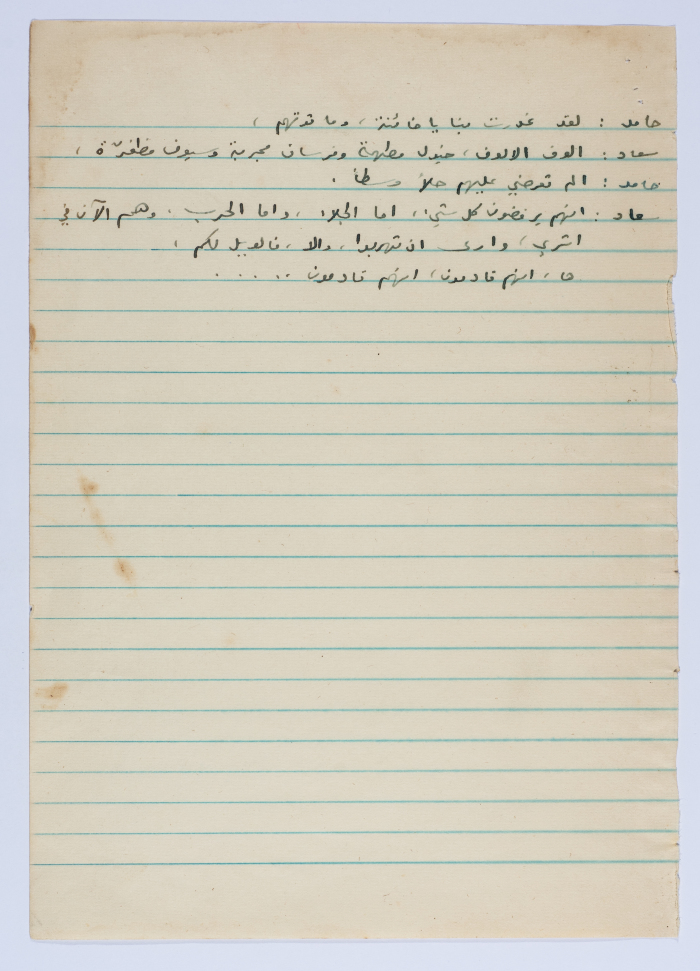 حامد : لقد غدرت بنا يا خائنة ، وما قوتهم ،
سعاد : الوف الالوف ، خيول مطهمة وفرسان مجربة وسيوف مظفرة ،
حامد : الم تعرضي عليهم حلاً وسطاً .
سعاد : انهم يرفضون كل شيء ، اما الجلاء ، واما الحرب . وهم الآن في
اثري ، وارى ان تهربوا ، والا ، فالويل لكم ،
ها ، انهم قادمون ، انهم قادمون .. . . . .